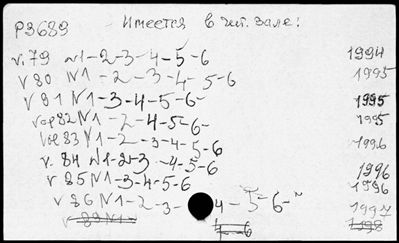 P3689 - Имеется в чит. зале:
v. 79 N1-2-3-4-5-6 1994
v 80 N1-2-3-4-5-6 1995
v 81 N1-3-4-6- 1995
vol 82 N1-2-4-5-6- 1995
vol 83 N1-2-3-4-5-6 1996
v. 84 N1-2-3-4-5-6 1996
v 85 N1-3-4-5-6 1996
v 86 N1-2-3-4-5-6- 1997
4-6 1998